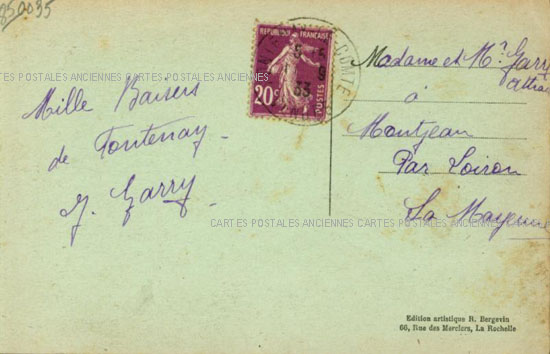 850095
Mille Baisers
de Fontenay
J. Garry
REPUBLIQUE FRANÇAISE
20c
POSTES
LE-COMTE
33
Madame et Mr Garry
à
Montjean
Par Loiron
La Mayenne
CARTES POSTALES ANCIENNES CARTES POSTALES ANCIENNES
CARTES POSTALES ANCIENNES CARTES POSTALES ANCIENNES
Edition artistique R. Bergevin
66, Rue des Merciers, La Rochelle